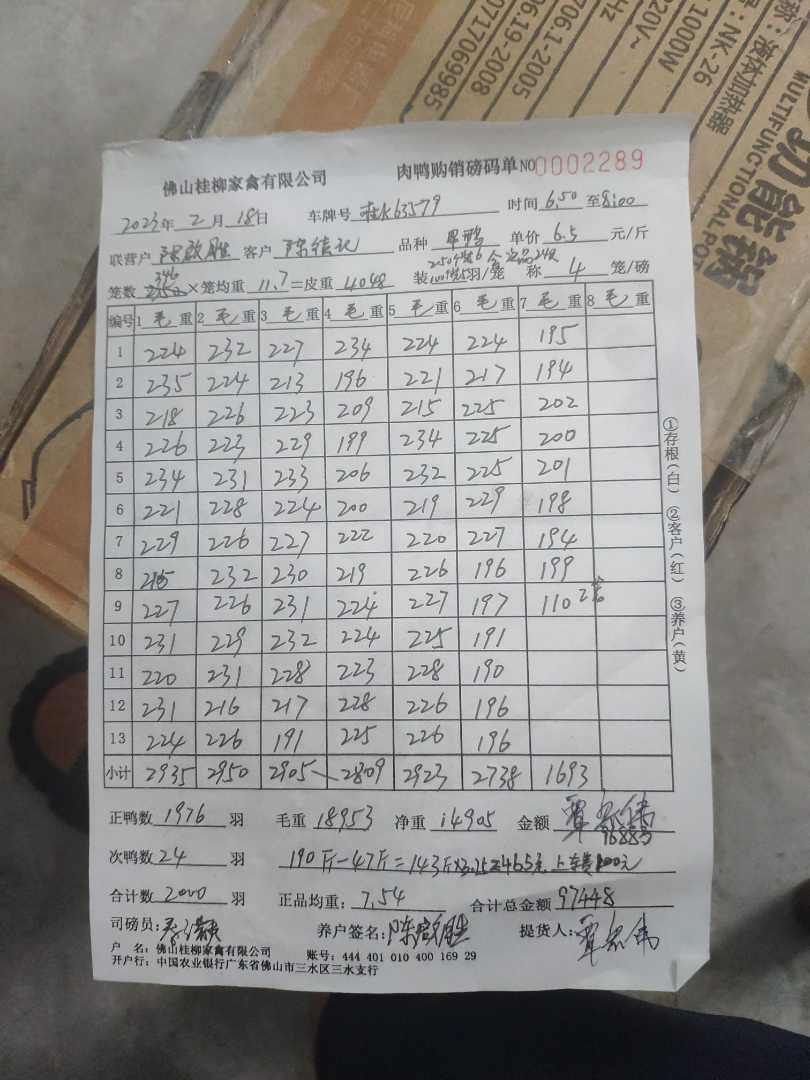 液体加热器
号:NK-26
1000W
220V~
Hz
706.1-2005
06.19-2008
0717069985
MULTIFUNCTIONAL POT
功能锅
佛山桂柳家禽有限公司 肉鸭购销磅码单 NO 0002289
2023年 2月 18日 车牌号 桂K63579 时间 6.50 至 8:00
联营户 客户 品种 单价 6.5 元/斤
笼数 346 ×笼均重 11.7 =皮重 4048 装 羽/笼 称 4 笼/磅
编号 1 毛 重 2 毛 重 3 毛 重 4 毛 重 5 毛 重 6 毛 重 7 毛 重 8 毛 重
1 224 232 227 234 224 224 195
2 235 224 213 196 221 217 194
3 218 226 223 209 215 225 202
4 226 223 229 199 234 225 200
5 234 231 233 206 232 225 201
6 221 228 224 200 219 229 198
7 229 226 227 222 220 227 194
8 215 232 230 219 226 196 199
9 227 226 231 224 227 197 110
10 231 229 232 224 225 191
11 220 231 228 223 228 190
12 231 216 217 228 226 196
13 224 226 191 225 226 196
小计 2935 2950 2905 2809 2923 2738 1693
①存根(白) ②客户(红) ③养户(黄)
正鸭数 1976 羽 毛重 18953 净重 14905 金额 96883
次鸭数 24 羽 190斤-47斤=143斤×3.25=465元 上车费100元
合计数 2000 羽 正品均重: 7.54 合计总金额 97448
司磅员: 养户签名: 提货人:
户 名: 佛山桂柳家禽有限公司 账号: 444 401 010 400 169 29
开户行: 中国农业银行广东省佛山市三水区三水支行